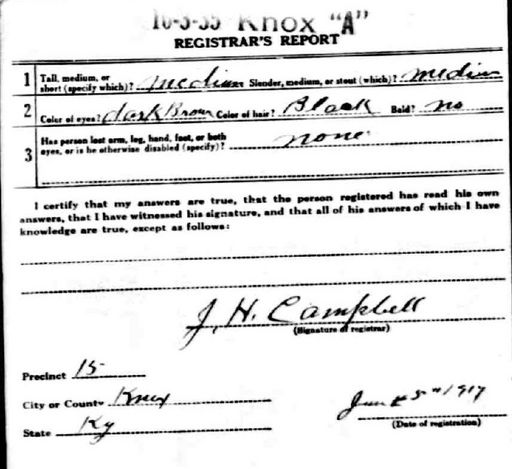 16-3-35 Knox "A"
REGISTRAR'S REPORT
1 Tall, medium, or short (specify which)? medium Slender, medium, or stout (which)? medium
2 Color of eyes? dark Brown Color of hair? Black Bald? no
3 Has person lost arm, leg, hand, foot, or both eyes, or is he otherwise disabled (specify)? none
I certify that my answers are true, that the person registered has read his own
answers, that I have witnessed his signature, and that all of his answers of which I have
knowledge are true, except as follows:
J. H. Campbell
(Signature of registrar)
Precinct 15
City or County Knox
State Ky
June 5" 1917
(Date of registration)